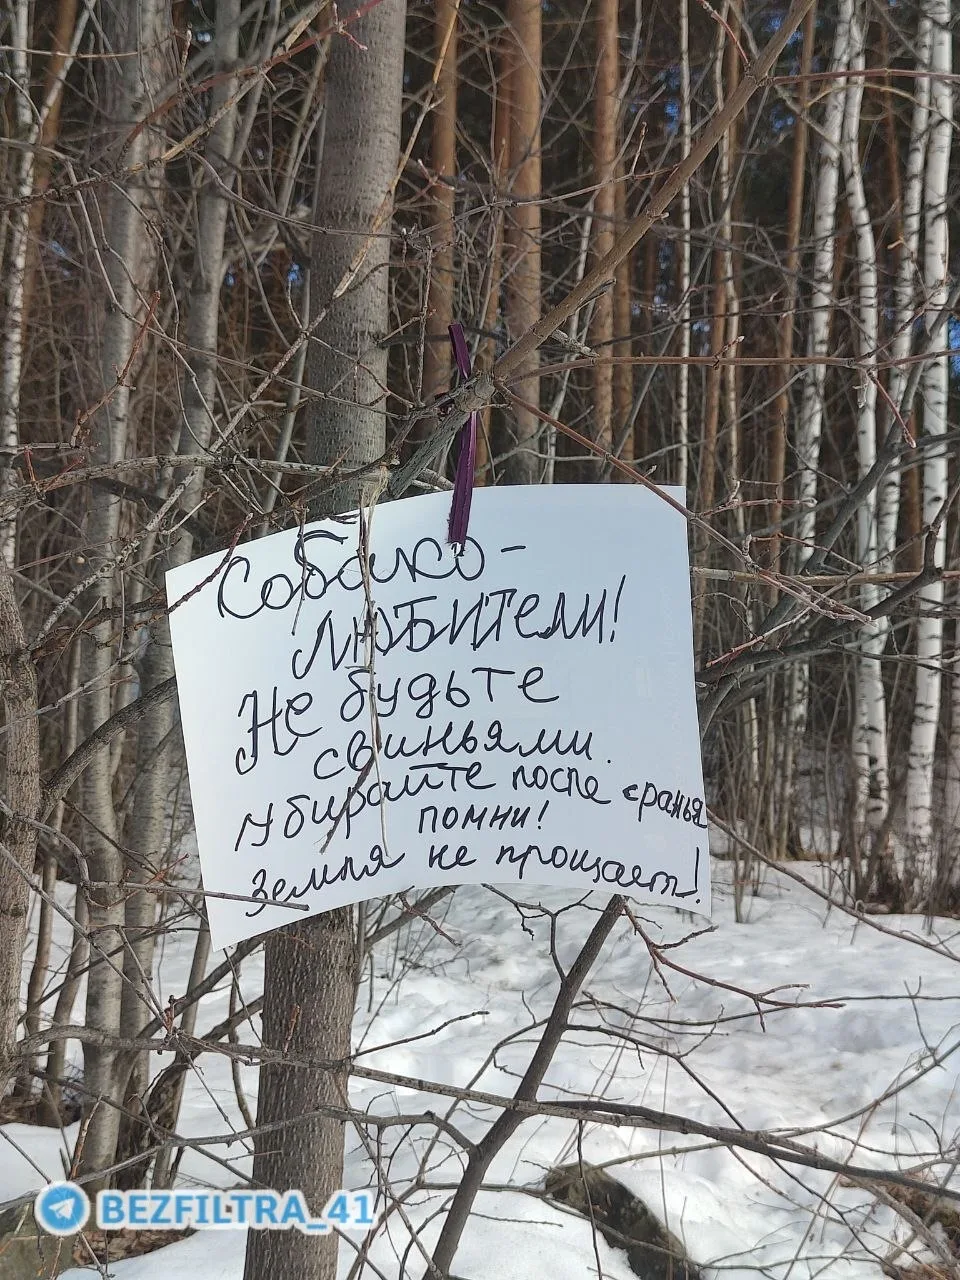 Собако-
ЛЮБИТели!
Не будьте
свиньями.
Убирайте после сранья
помни!
Земля не прощает!
BEZFILTRA_41